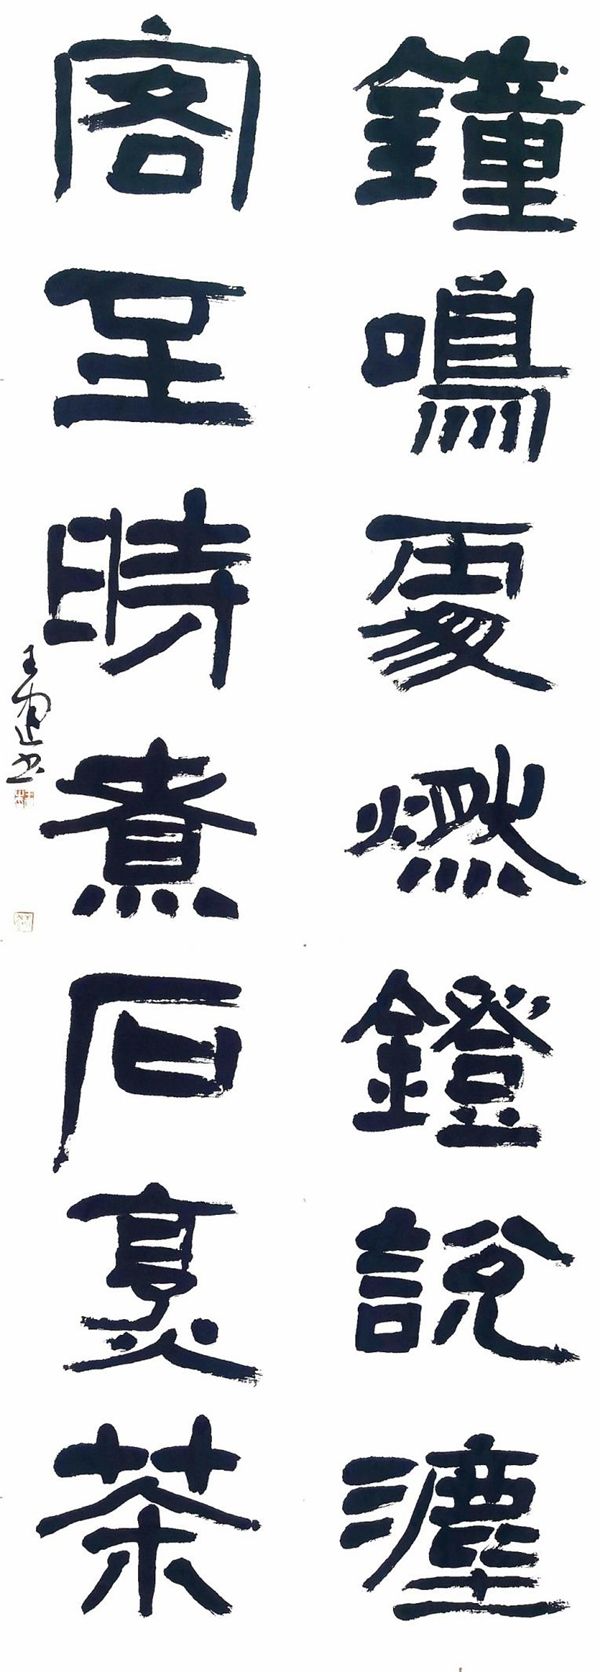 鐘鳴處燃鐙說灋
客至時煮石烹茶